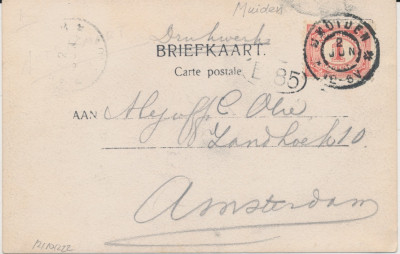 Muiden
Drukwerk
BRIEFKAART.
Carte postale
MUIDEN
2
JUN
85
AAN Mejuff. C. Olie.
Zandhoek 10.
Amsterdam